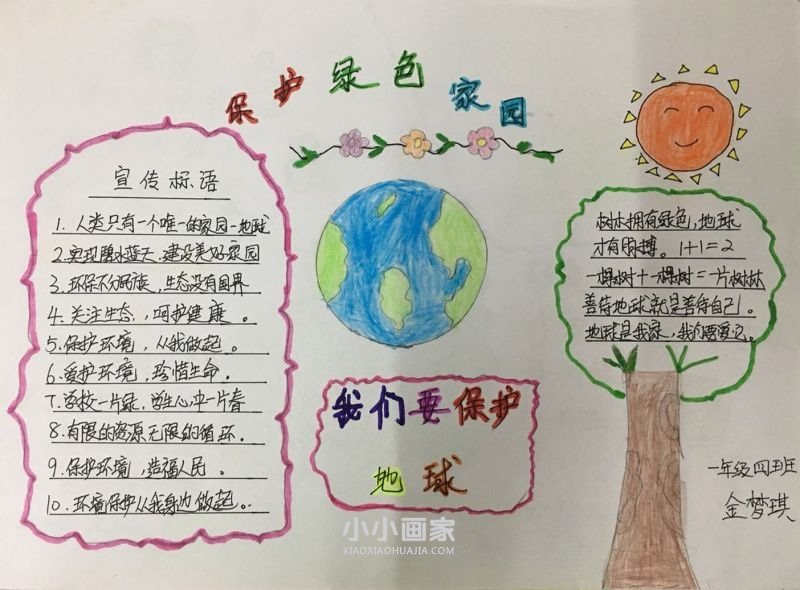 保护绿色家园
宣传标语
1. 人类只有一个唯一的家园—地球
2.实现碧水蓝天,建设美好家园
3.环保不分民族,生态没有国界
4.关注生态,呵护健康。
5.保护环境,从我做起。
6.爱护环境,珍惜生命。
7.学校一片绿,学生心中一片春
8.有限的资源无限的循环。
9.保护环境,造福人民。
10.环境保护从我身边做起。
我们要保护
地球
树木拥有绿色,地球
才有脉搏。1+1=2
一棵树+一棵树=一片树林
善待地球就是善待自己。
地球是我家,我们要爱它。
一年级四班
金梦琪
小小画家
XIAOXIAOHUAJIA.COM